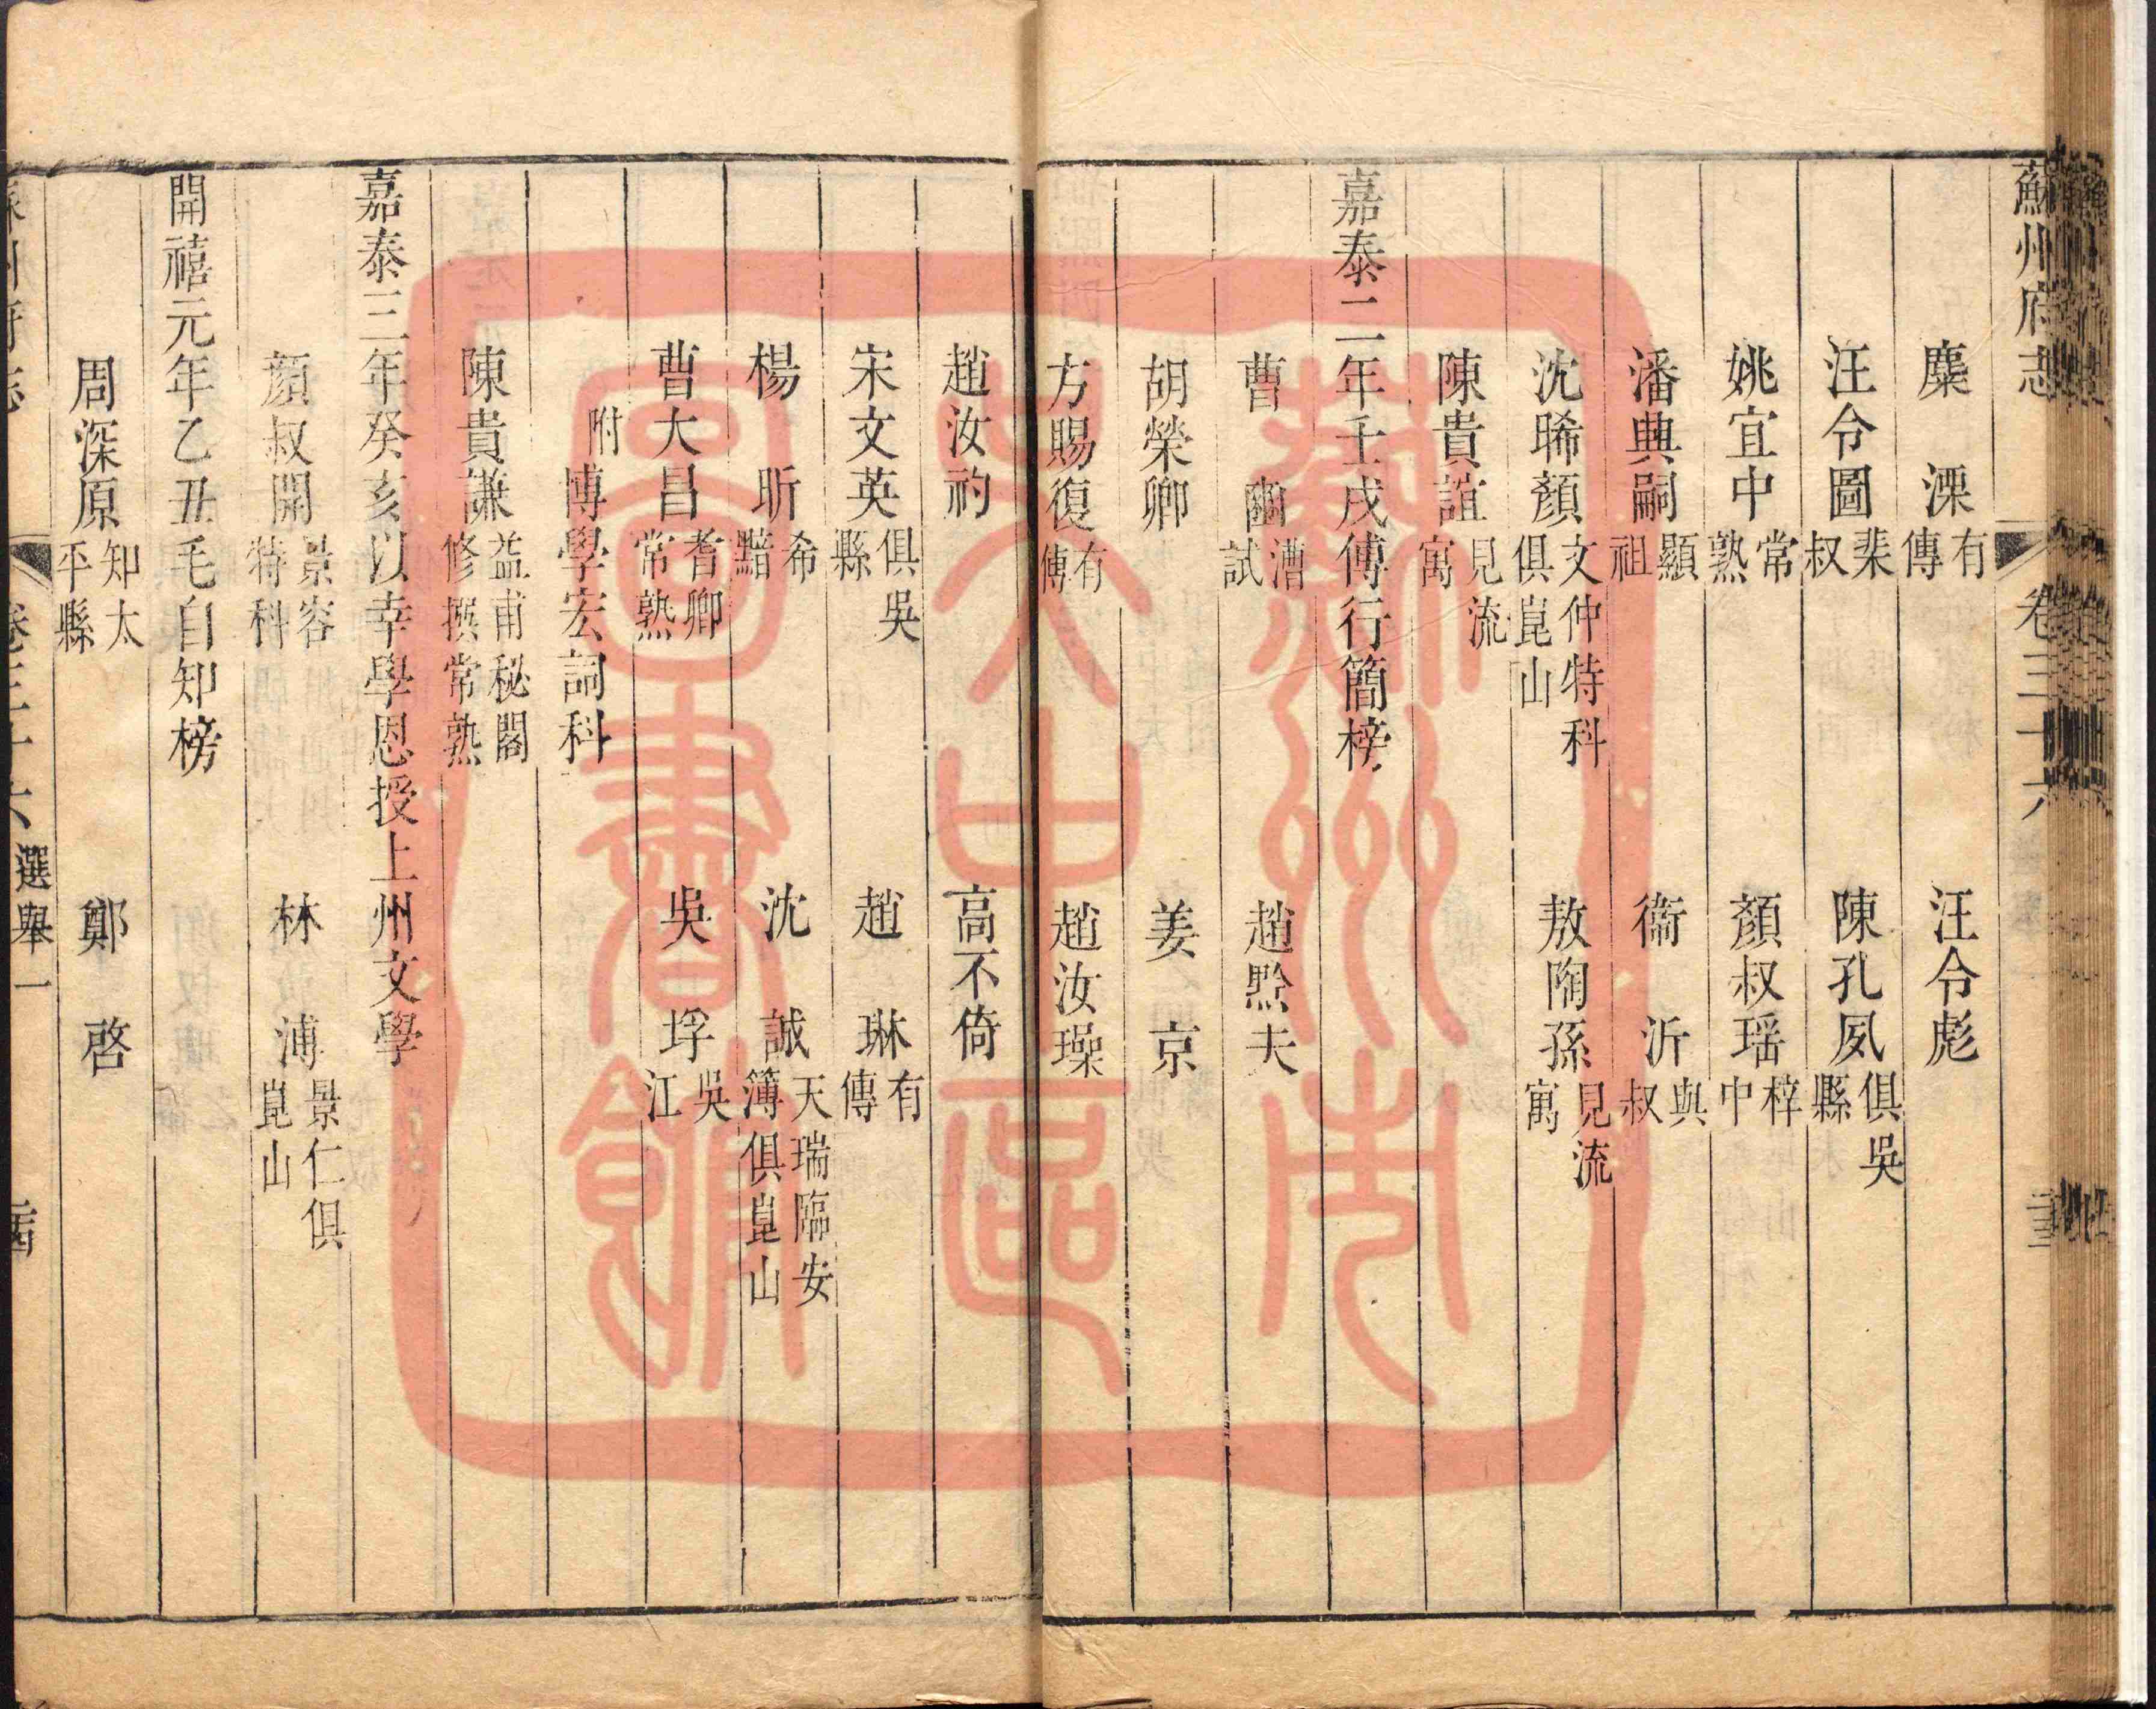 蘇州府志 卷三十六
麋溧 有傳 汪令彪
汪令圖 棐叔 陳孔夙 俱吳縣
姚宜中 常熟 顏叔瑶 梓中
潘興嗣 顯祖 衞沂 與叔
沈晞顏 文仲特科俱崑山 敖陶孫 見流寓
陳貴誼 見流寓
嘉泰二年壬戌傅行簡榜
曹豳 漕試 趙黔夫
胡榮卿 姜京
方賜復 有傳 趙汝璪
趙汝礿 高不倚
宋文英 俱吳縣 趙琳 有傳
楊昕 希黯 沈誠 天瑞臨安簿俱崑山
曹大昌 耆卿常熟 吳垺 吳江
附博學宏詞科
陳貴謙 益甫秘閣修撰常熟
嘉泰三年癸亥以幸學恩授上州文學
顏叔開 景容特科 林溥 景仁俱崑山
開禧元年乙丑毛自知榜
周深原 知太平縣 鄭啓
蘇州府志 卷三十六 選舉一
蘇州市共中區圖書館